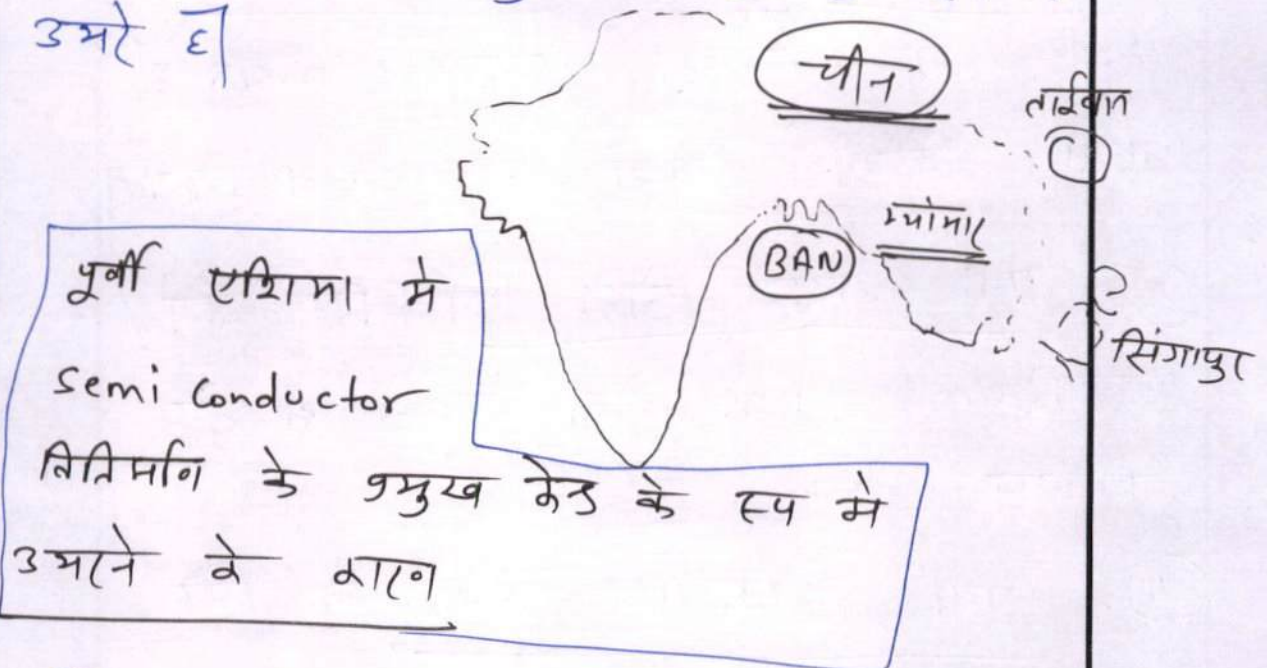 उभरे हैं।
चीन
ताईवान
म्यांमार
BAN
सिंगापुर
पूर्वी एशिया मे
semi Conductor
विनिर्माण के प्रमुख केंद्र के रूप मे
उभरने के कारण